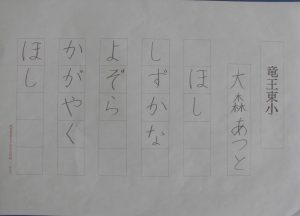 竜王東小
大森あつと
ほし
しずかな
よぞら
かがやく
ほし